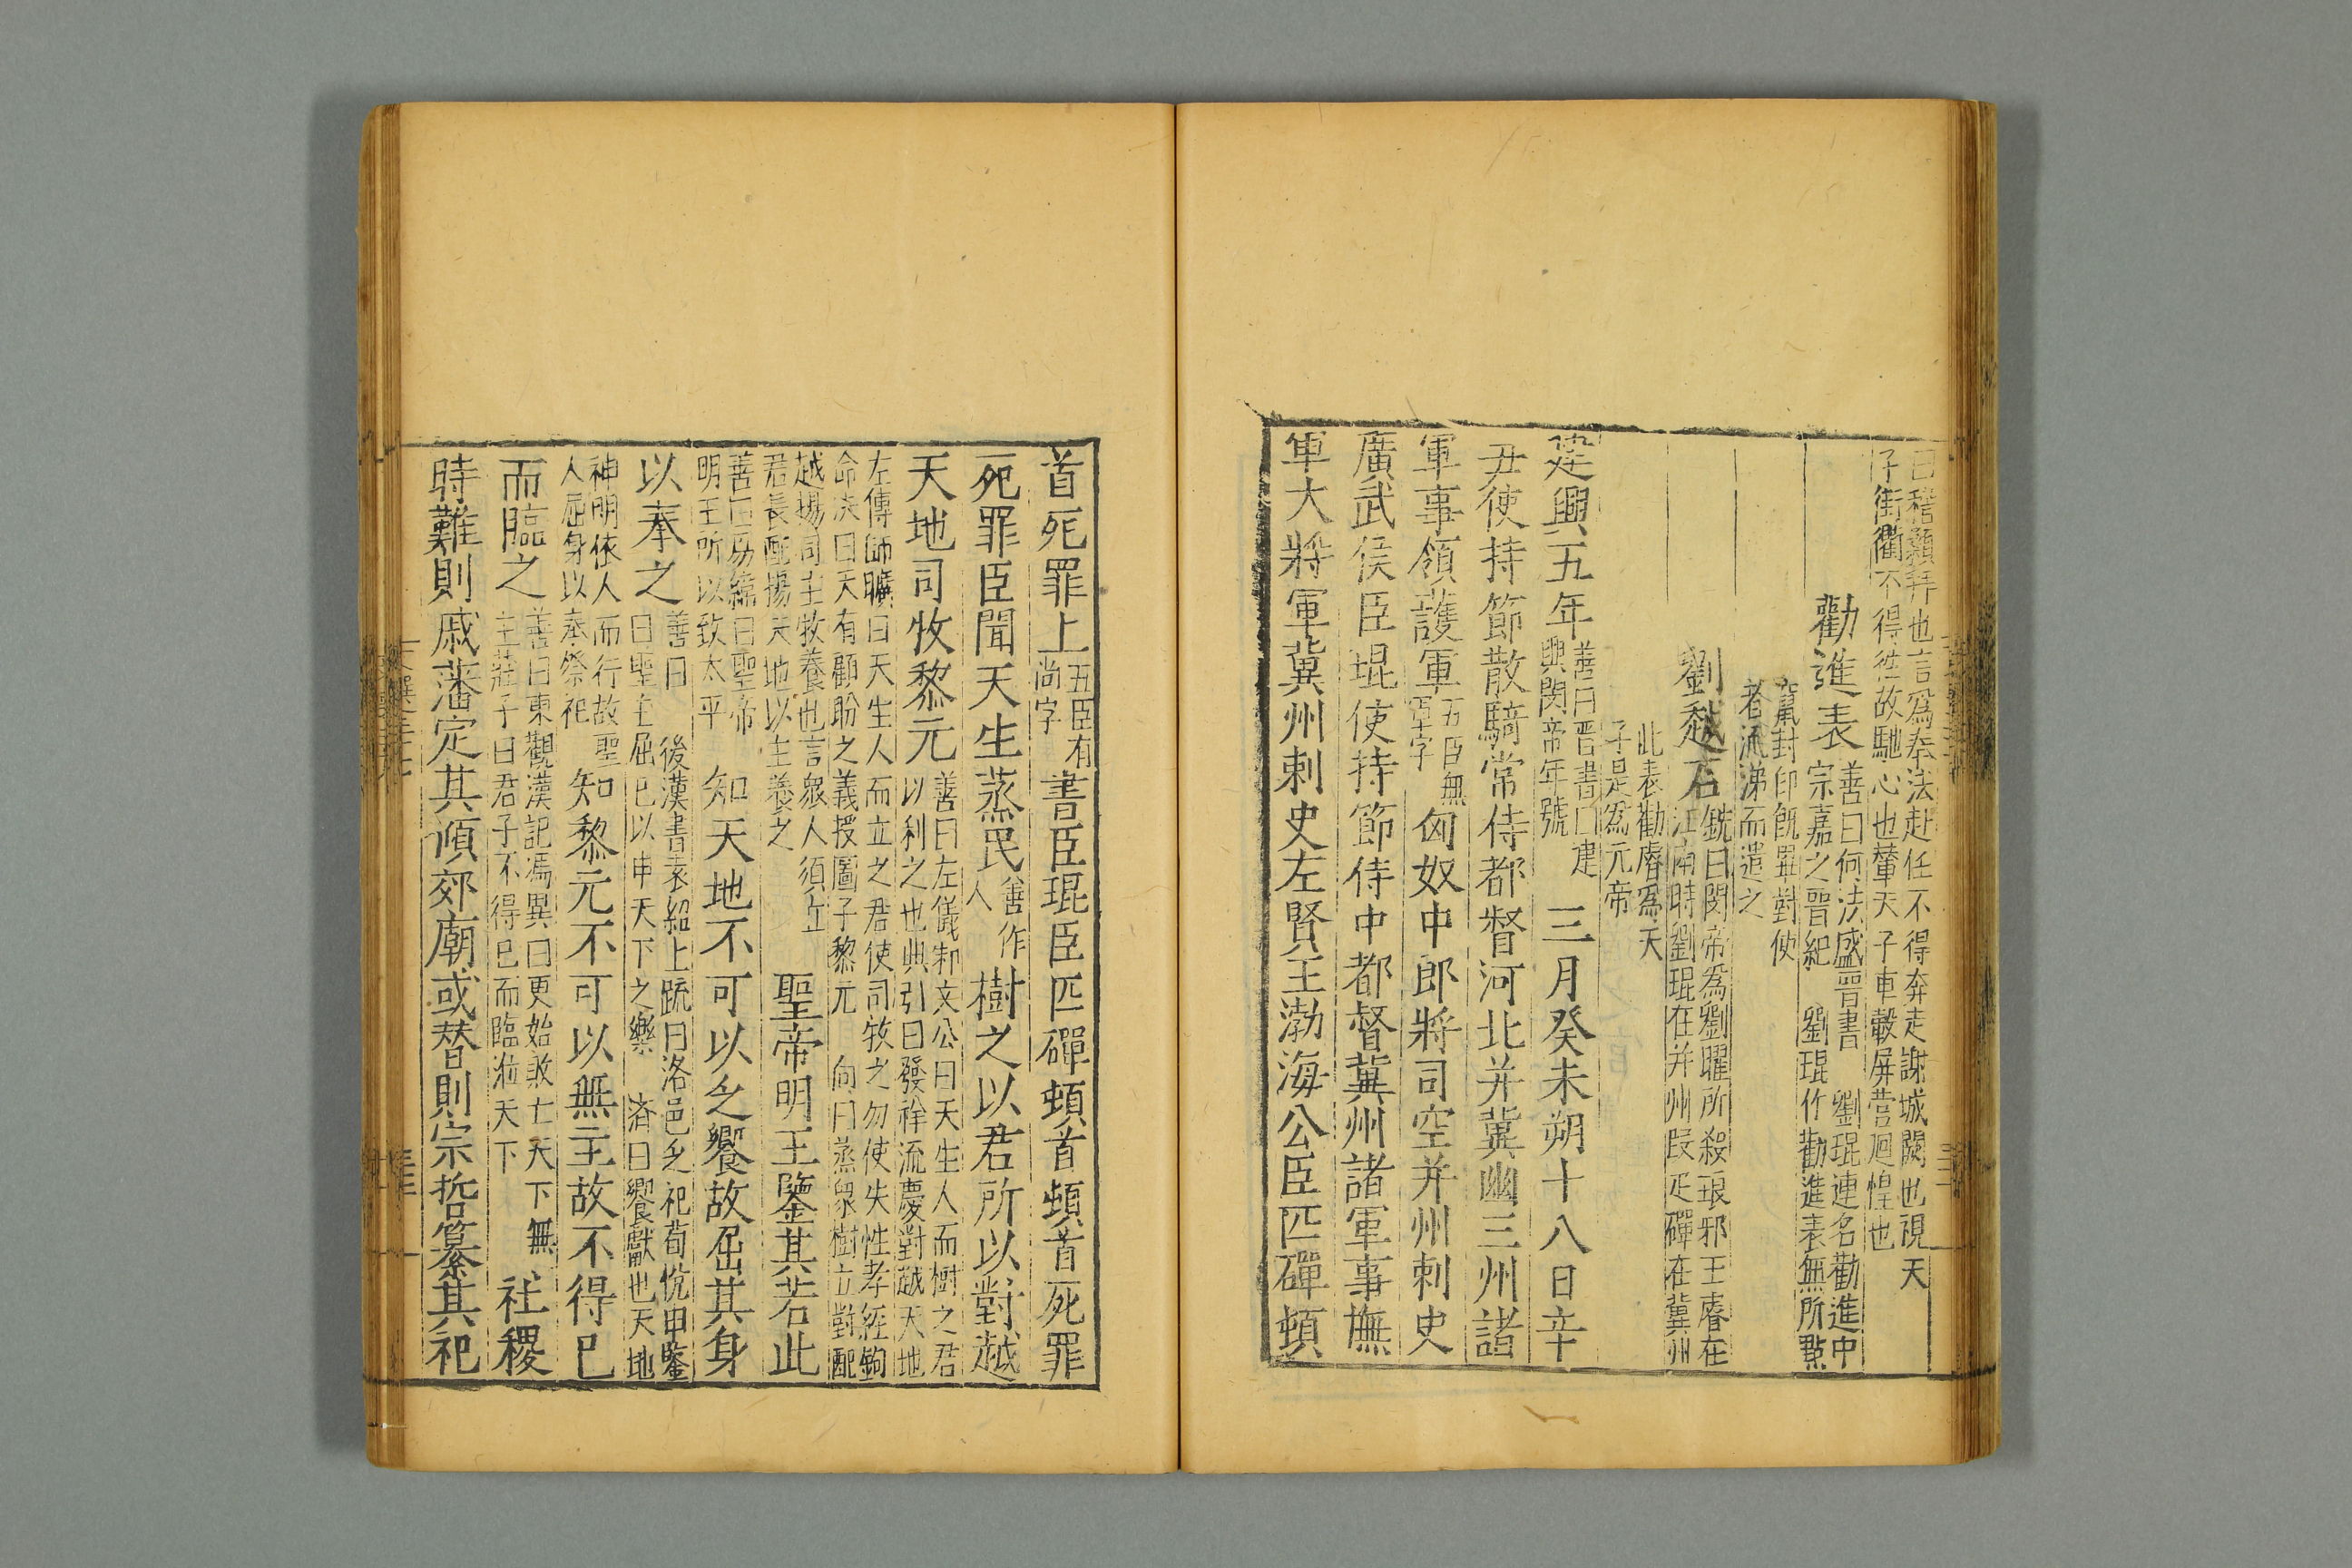 曰稽顙拜也言爲奉法赴任不得奔走謝城闕也視天
子街衢不得徃故馳心也輦天子車轂屏營廻惶也
勸進表
善曰何法盛晉書劉琨連名勸進中
宗嘉之晉紀劉琨作勸進表無所㸃
竄封印旣畢對使
者流涕而遣之
劉越石
銑曰閔帝爲劉曜所殺琅邪王睿在
江南時劉琨在并州段疋磾在冀州
此表勸睿爲天
子是爲元帝
建興五年
善曰晉書曰建
興閔帝年號
三月癸未朔十八日辛
丑使持節散騎常侍都督河北并冀幽三州諸
軍事領護軍
五臣無
軍字
匈奴中郎將司空并州刺史
廣武侯臣琨使持節侍中都督冀州諸軍事撫
軍大將軍冀州刺史左賢王渤海公臣匹磾頓
首死罪上
五臣有
尚字
書臣琨臣匹磾頓首頓首死罪
死罪臣聞天生蒸民
善作
人
樹之以君所以對越
天地司牧黎元
善曰左傳邾文公曰天生人而樹之君
以利之也典引曰發祥流慶對越天地
左傳師曠曰天生人而立之君使司牧之勿使失性孝經鉤
命決曰天有顧眄之義授圖子黎元 向曰蒸衆樹立對配
越揚司主牧養也言衆人須立
君長配揚天地以主養之
聖帝明王鑒其若此
善曰易緯曰聖帝
明王所以致太平
知天地不可以乏饗故屈其身
以奉之
善曰後漢書袁紹上疏曰洛邑乏祀荀悅申鑒
曰聖王屈己以申天下之樂 濟曰饗獻也天地
神明依人而行故聖
人屈身以奉祭祀
知黎元不可以無主故不得巳
而臨之
善曰東觀漢記馮異曰更始敗亡天下無
主莊子曰君子不得巳而臨蒞天下
社稷
時難則戚藩定其傾郊廟或替則宗哲纂其祀